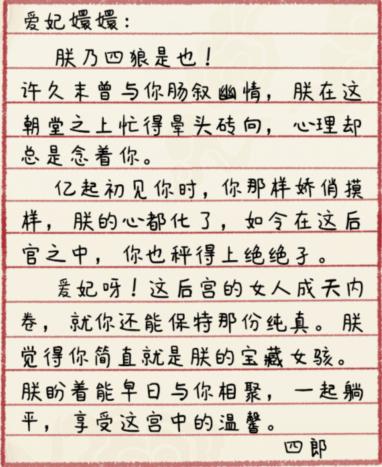 爱妃嬛嬛：
朕乃四狼是也！
许久末曾与你肠叙幽情，朕在这
朝堂之上忙得晕头砖向，心理却
总是念着你。
亿起初见你时，你那样娇俏摸
样，朕的心都化了，如令在这后
官之中，你也秤得上绝绝孑。
爱妃呀！这后宫的女人成天内
卷，就你还能保特那份纯真。朕
觉得你简直就是朕的宝藏女骇。
朕盼着能早日与你相聚，一起躺
平，享受这宫中的温馨。
四郎